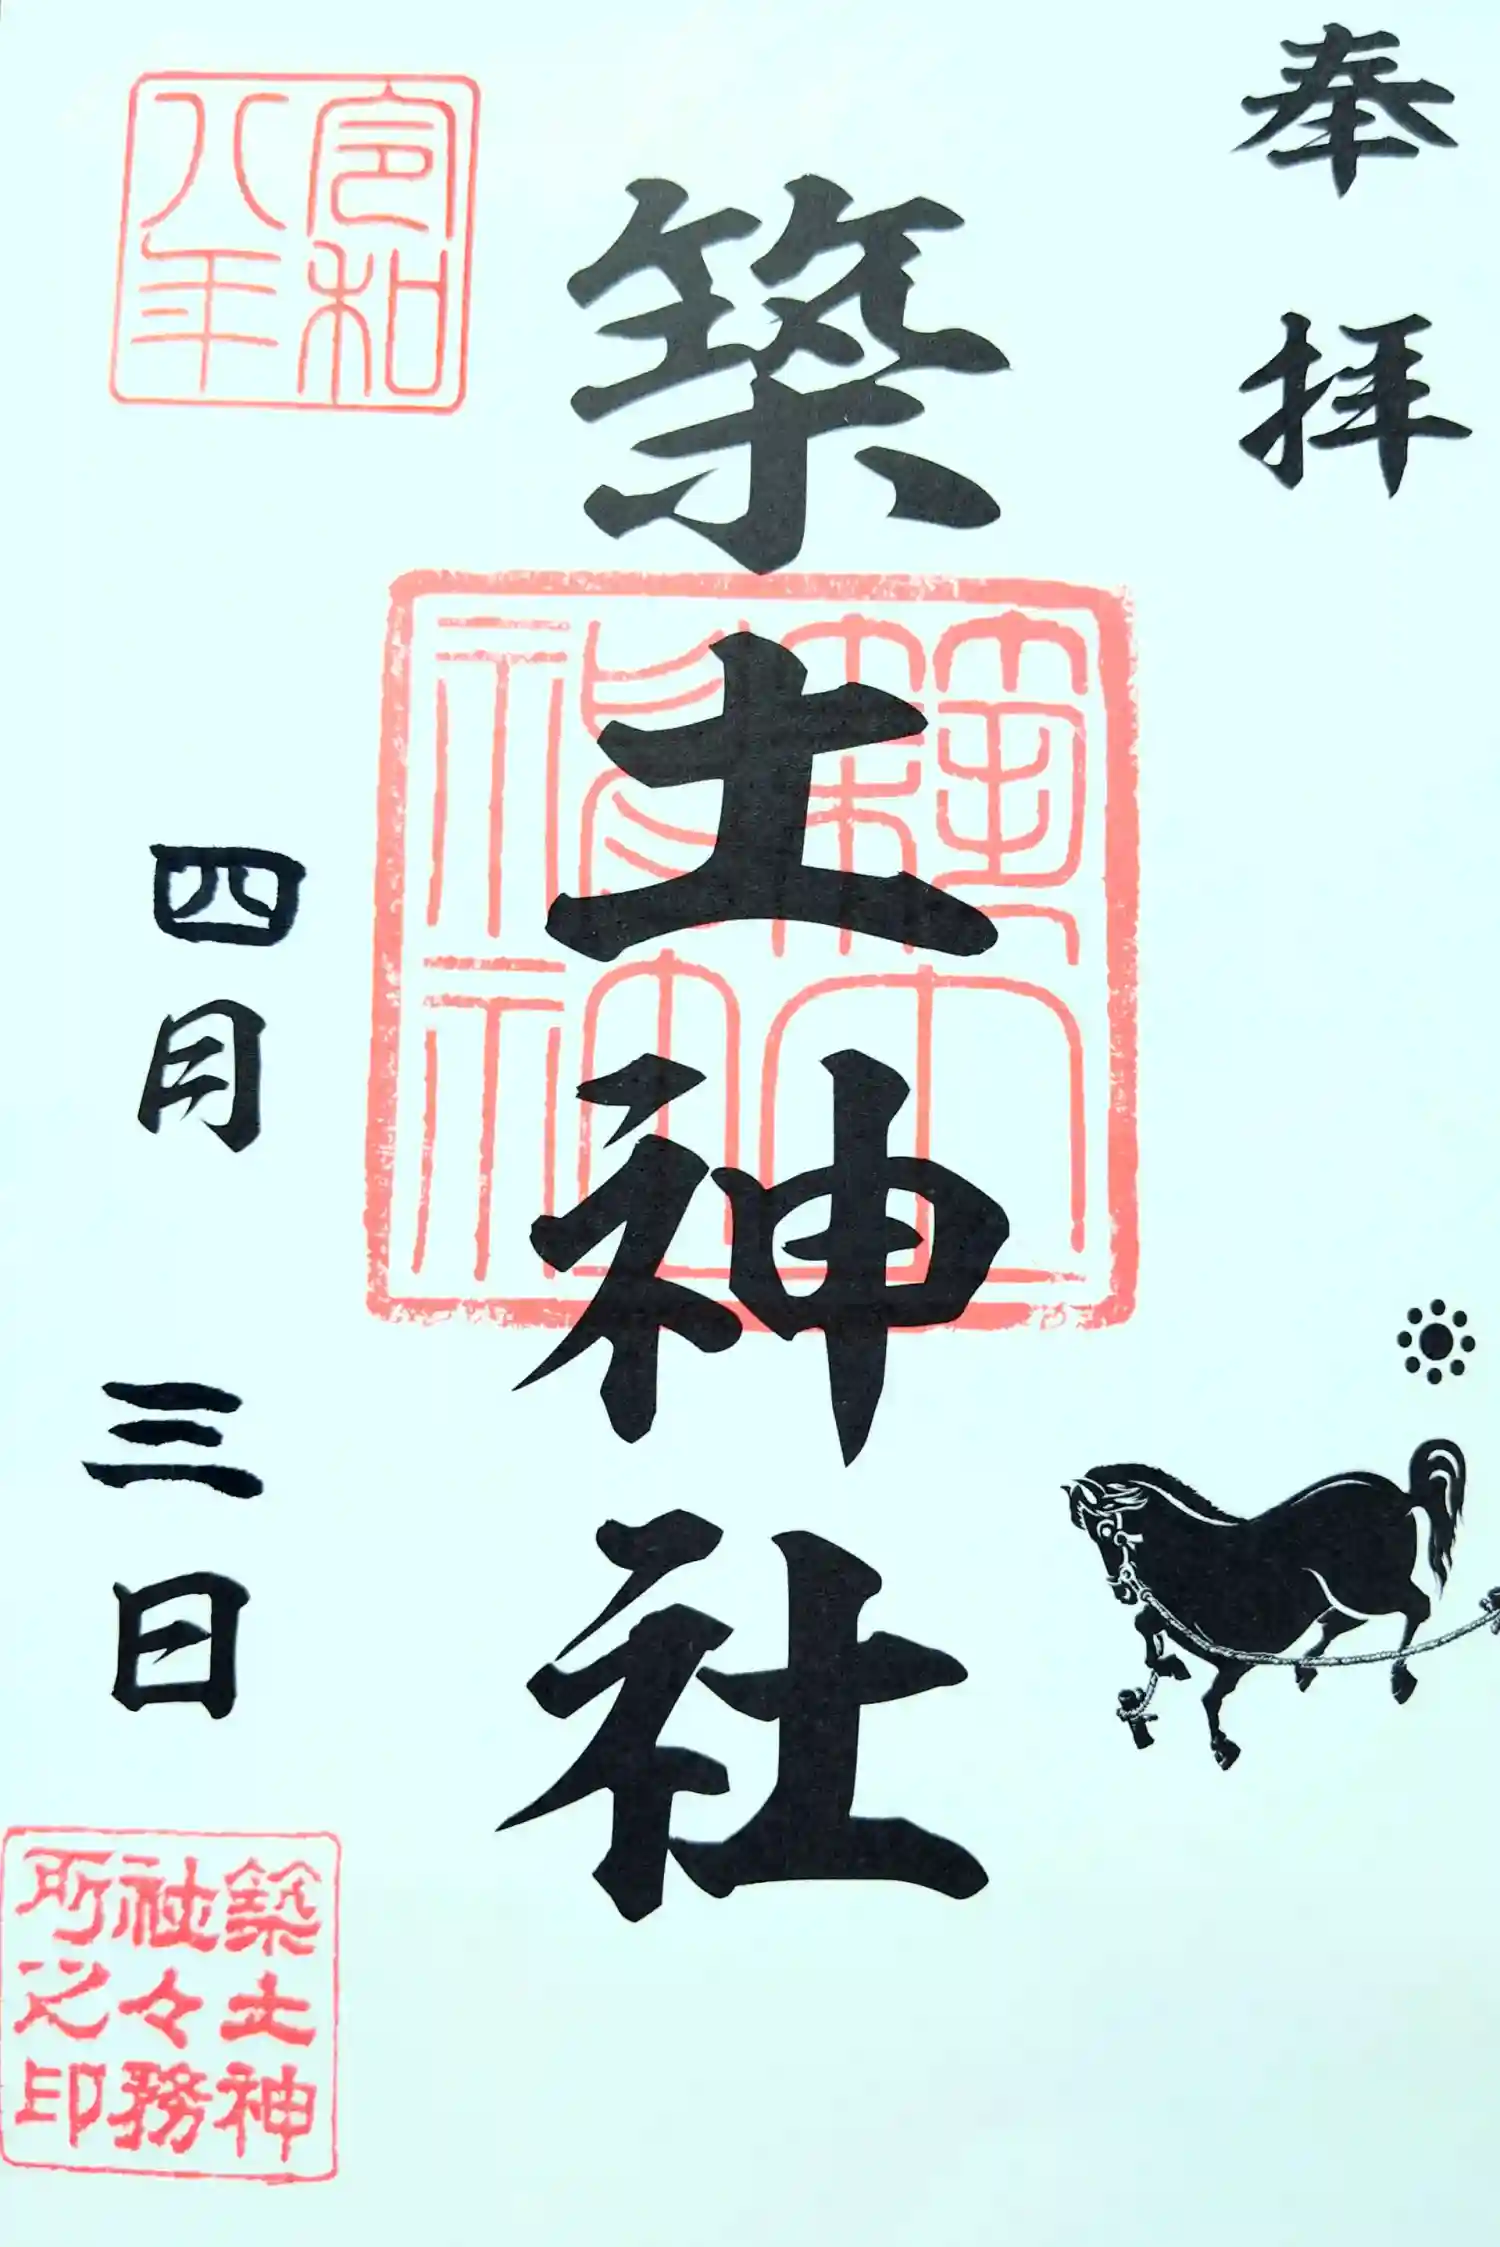 奉拝
築土神社
築土神社
令和八年
四月三日
築土神社々務所之印